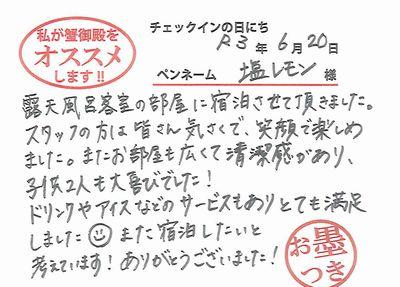 私が蟹御殿を
オススメ
します!!
チェックインの日にち
R3年6月20日
ペンネーム 塩レモン 様
露天風呂客室の部屋に宿泊させて頂きました。
スタッフの方は皆さん気さくで、笑顔で楽しめ
ました。またお部屋も広くて清潔感があり、
子供2人も大喜びでした!
ドリンクやアイスなどのサービスもありとても満足
しました☺また宿泊したいと
考えています!ありがとうございました!
お墨
つき